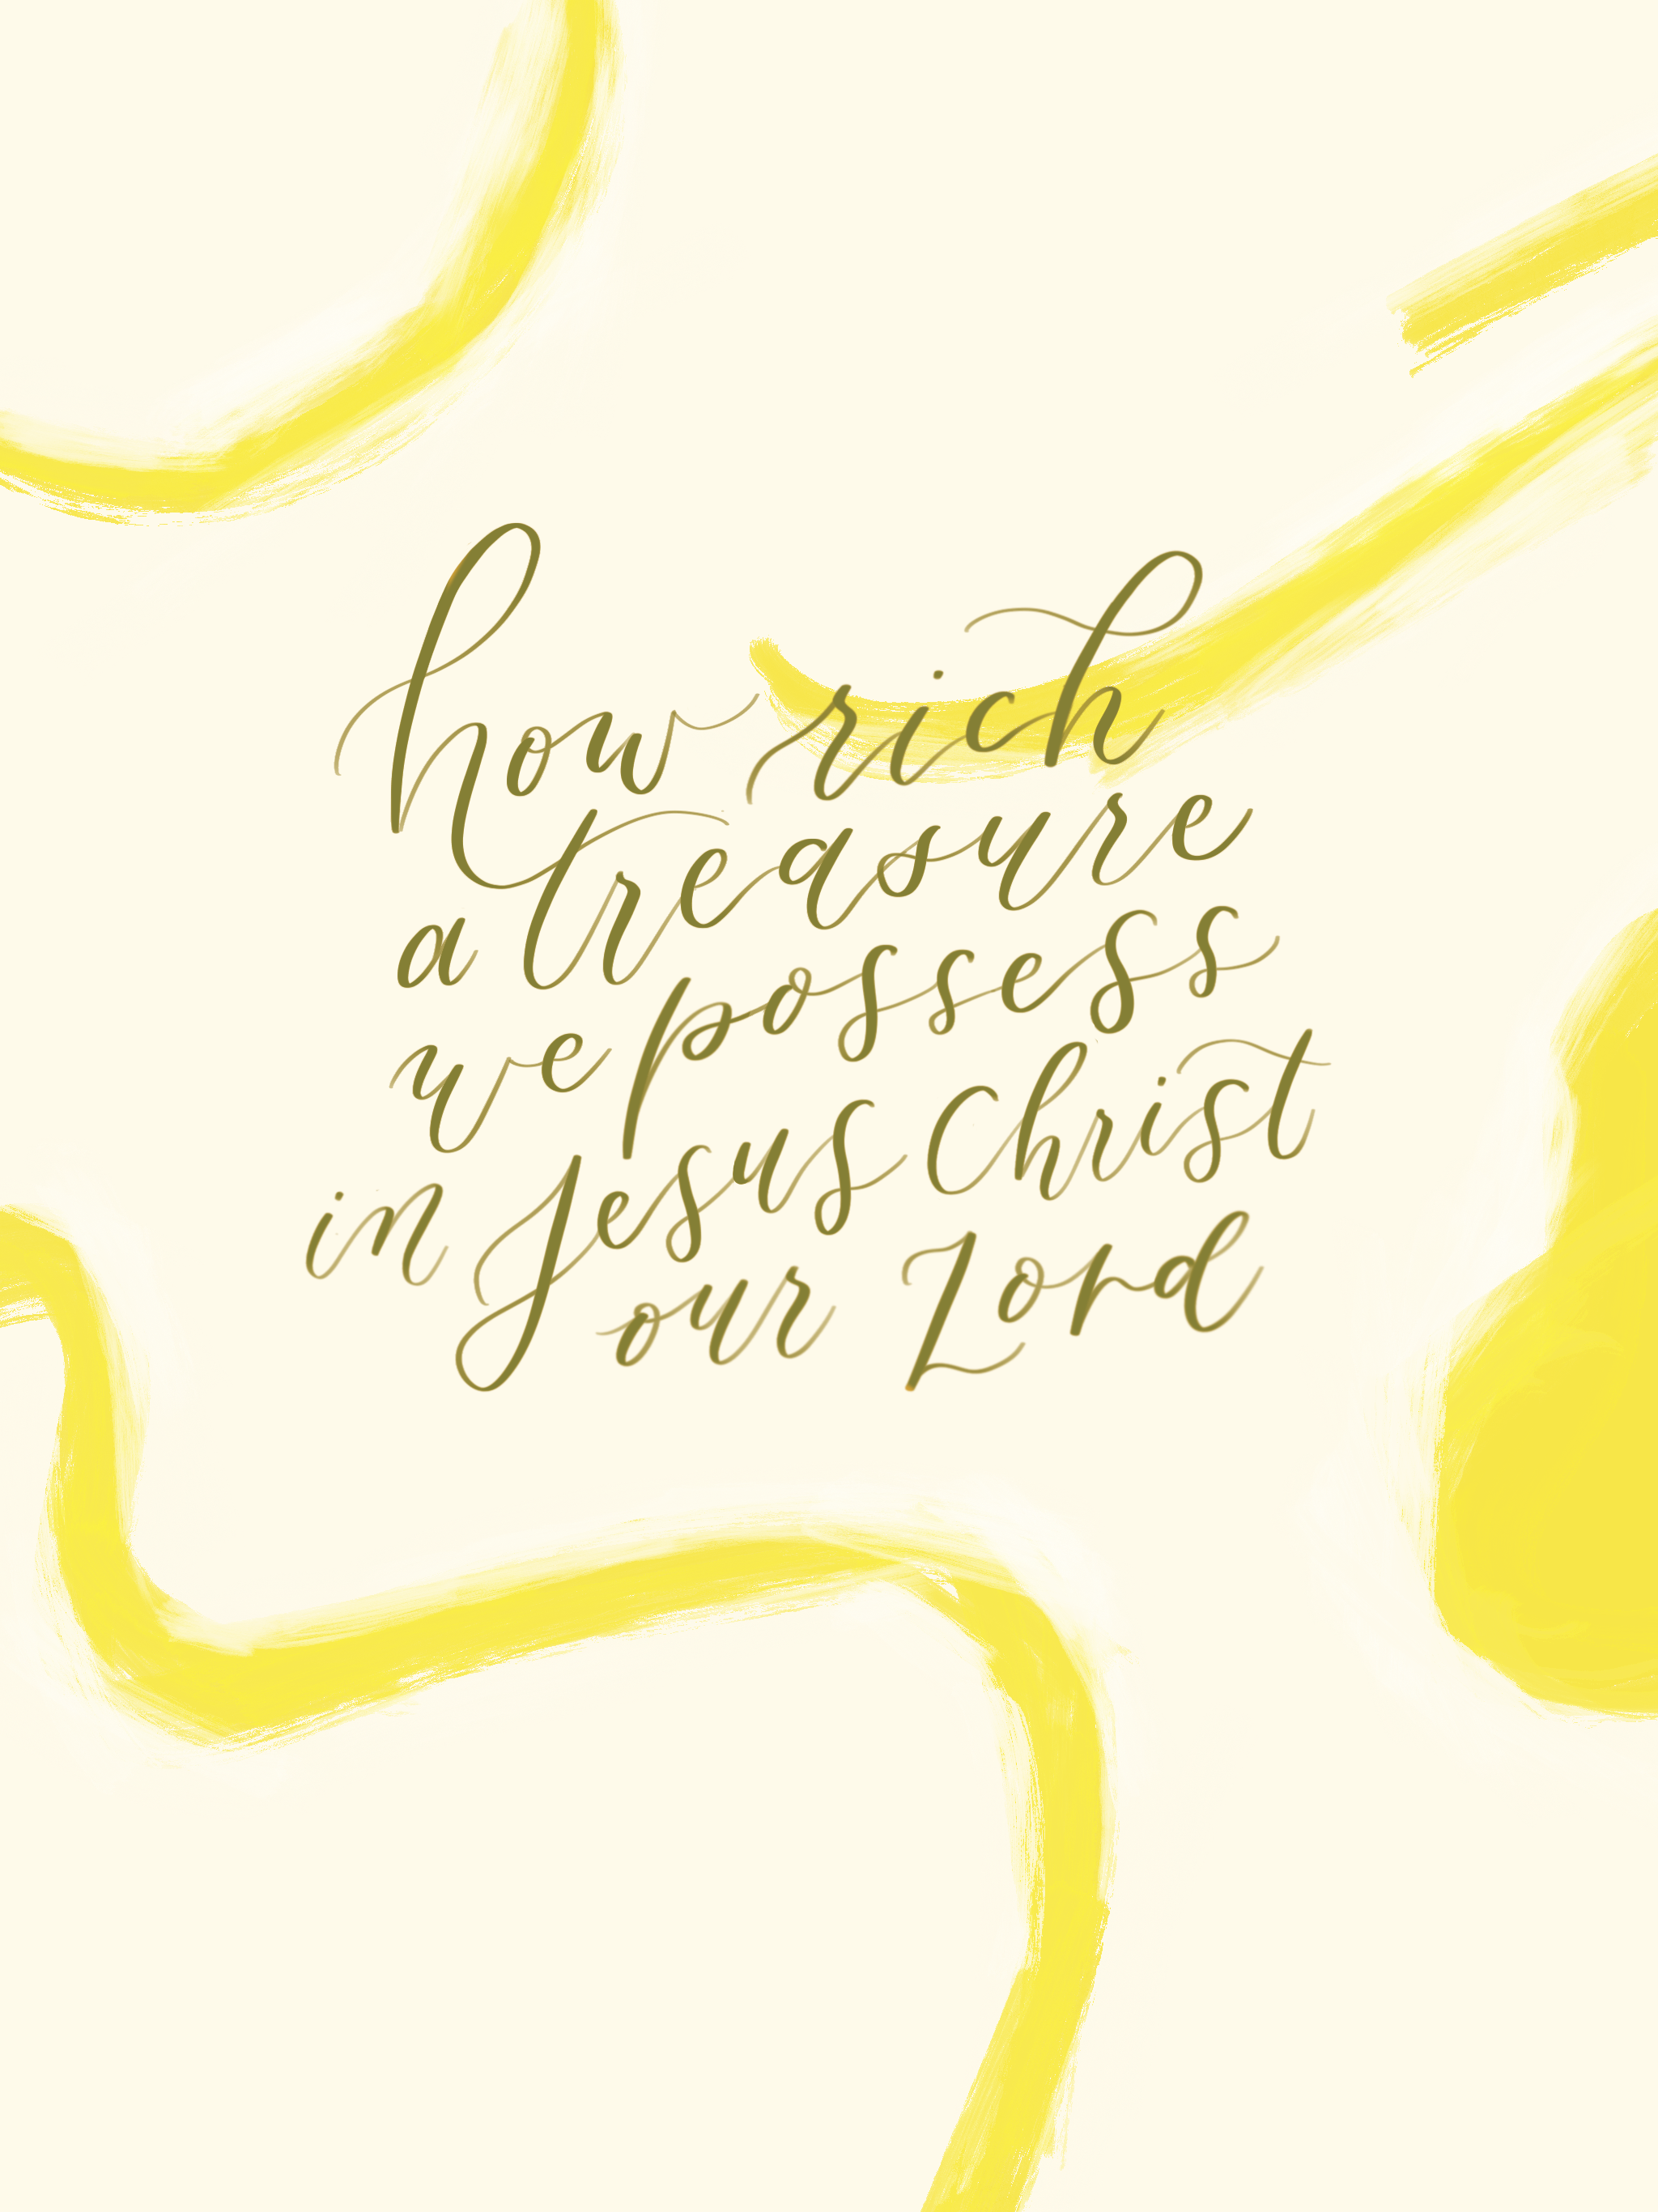 how rich
a treasure
we possess
in Jesus Christ
our Lord